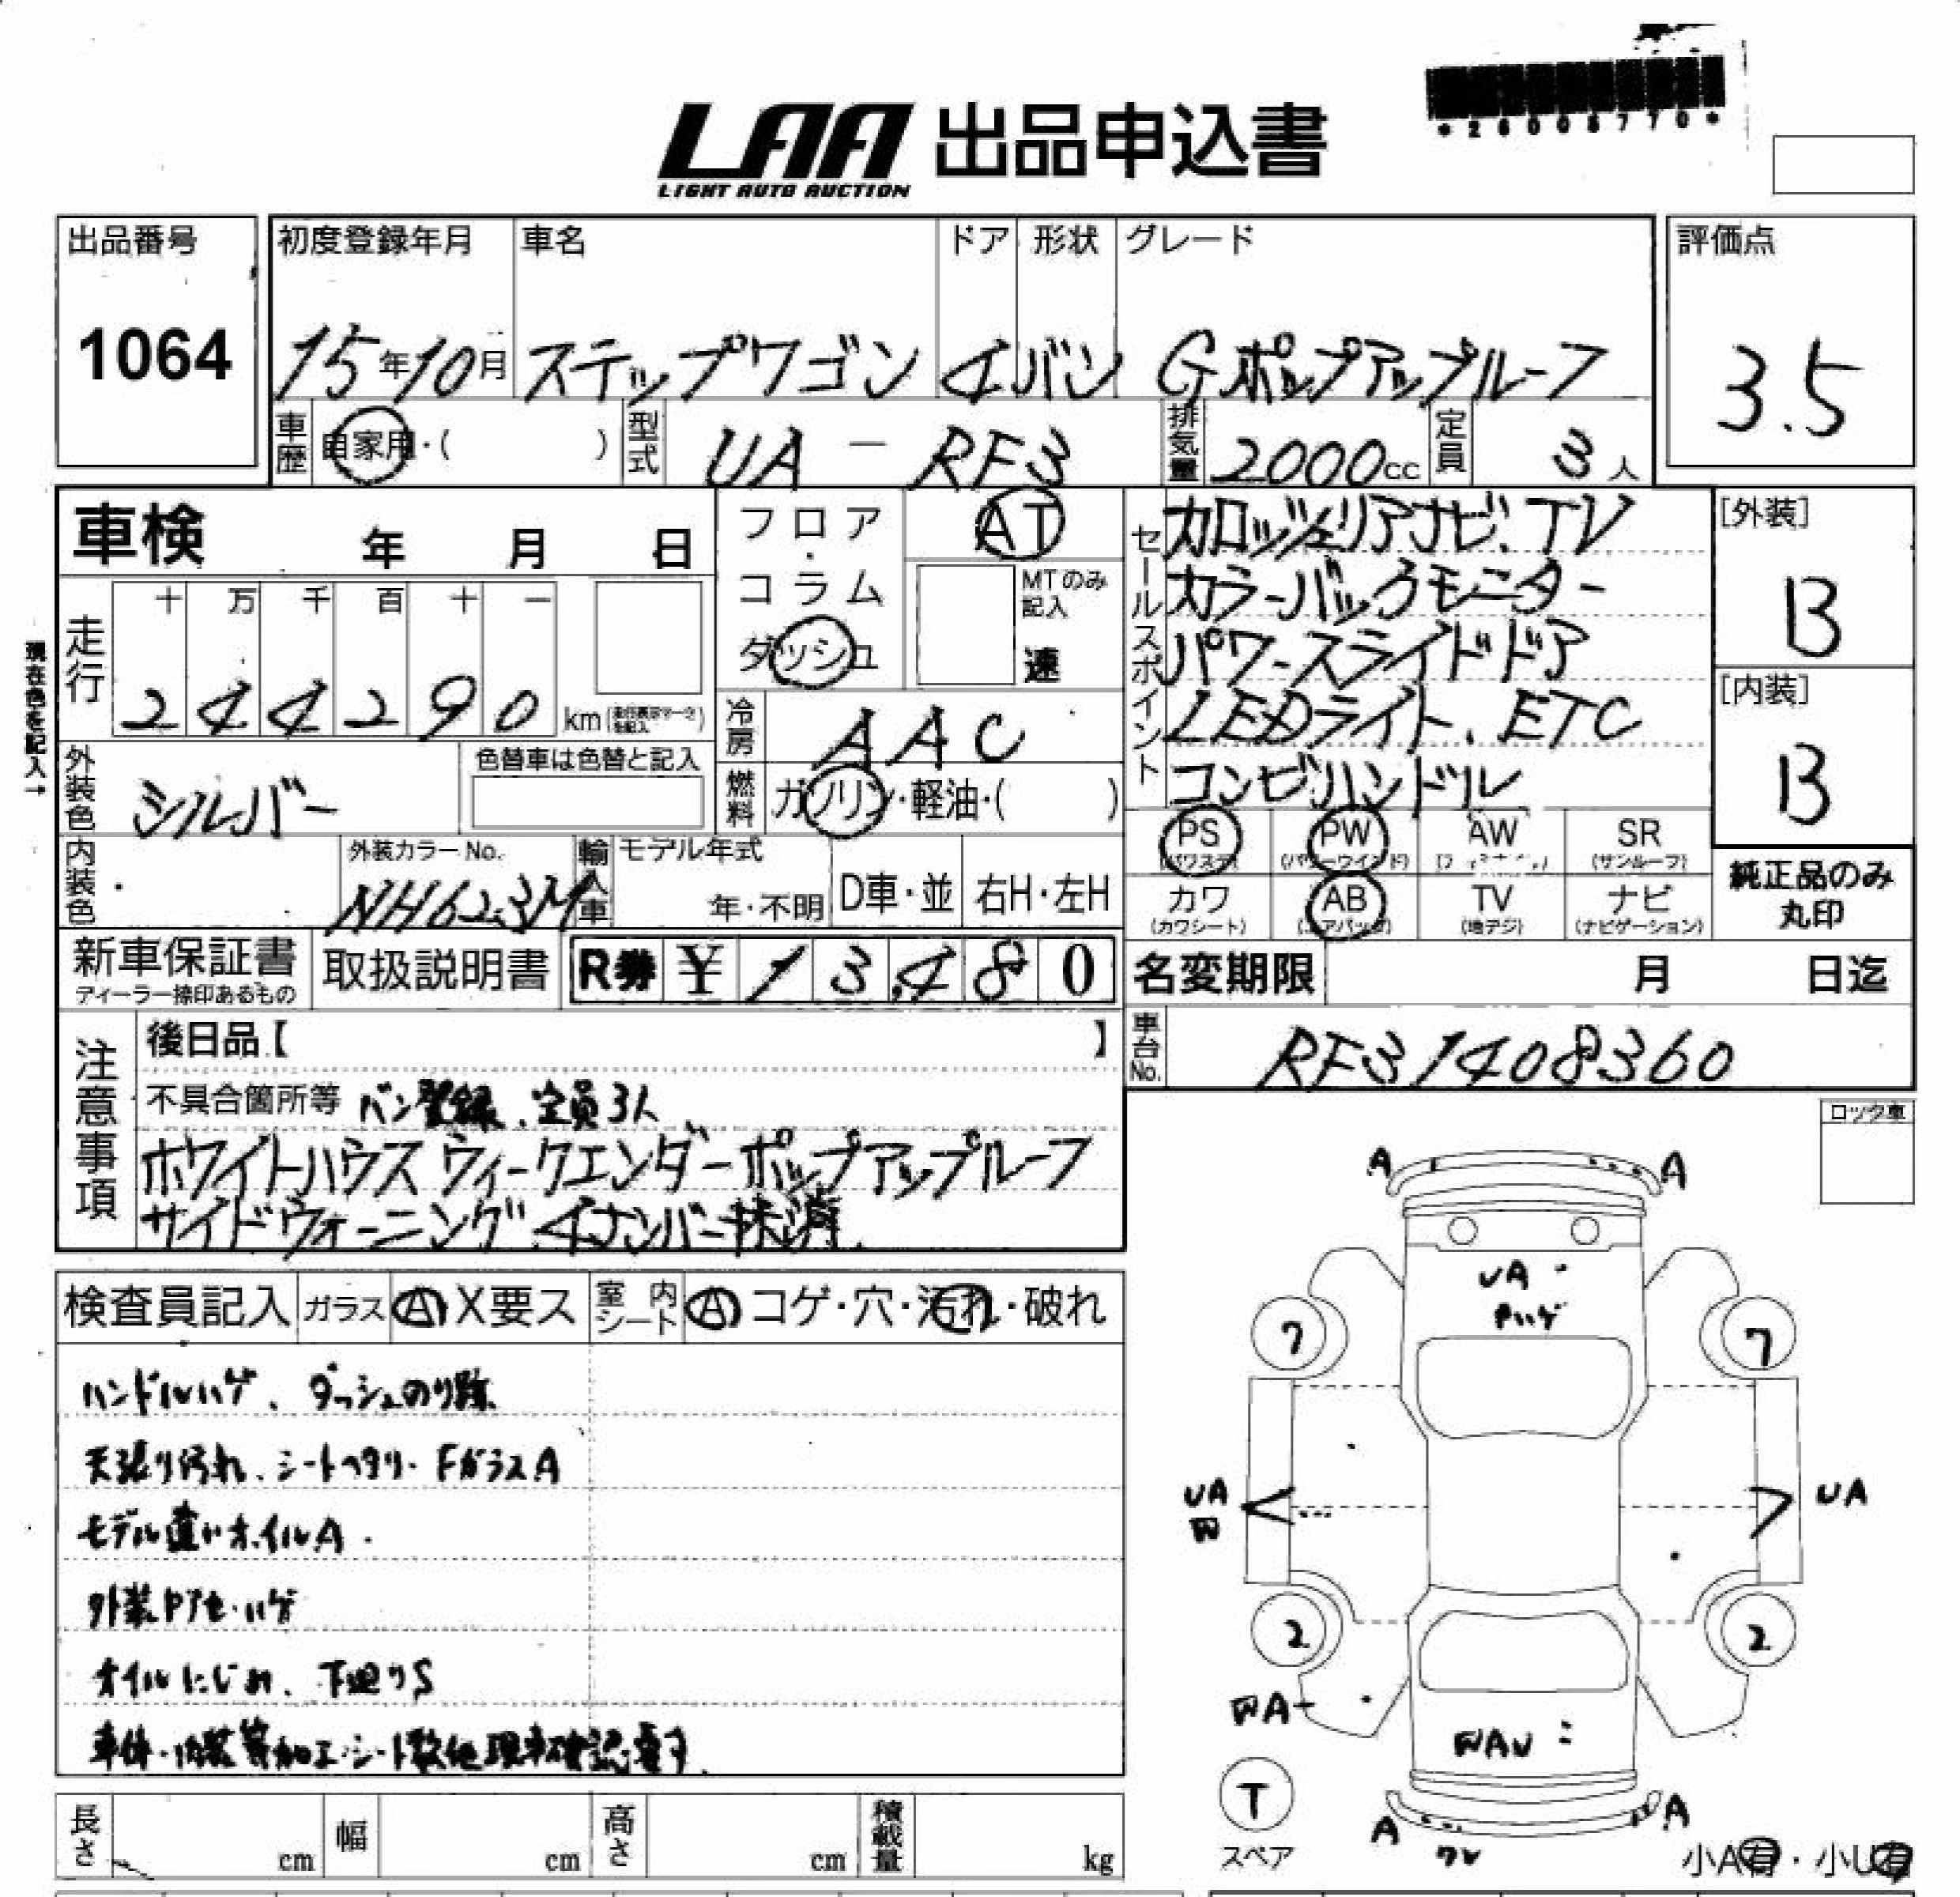 LAA 出品申込書
LIGHT AUTO AUCTION
*26006770*
出品番号
1064
初度登録年月 車名 ドア 形状 グレード
15年10月 ステップワゴン 4 バン Gポップアップルーフ
評価点
3.5
車歴 自家用・( ) 型式 UA-RF3 排気量 2000cc 定員 3人
車検 年 月 日
フロア・コラム ダッシュ
AT
MTのみ記入
速
現在色を記入→
走行 十 万 千 百 十 一
244290 km
冷房 AAC
燃料 ガソリン・軽油・( )
外装色 シルバー
色替車は色替と記入
内装色
外装カラーNo.
NH623M
輸入車 モデル年式
年・不明 D車・並 右H・左H
セールスポイント
カロッツェリアナビ、TV
カラーバックモニター
パワースライドドア
LEDライト、ETC
コンビハンドル
PS (パワステ) PW (パワーウインド) AW SR (サンルーフ)
カワ (カワシート) AB (エアバッグ) TV (地デジ) ナビ (ナビゲーション)
[外装]
B
[内装]
B
純正品のみ丸印
新車保証書
ディーラー捺印あるもの
取扱説明書
R券 ¥13,480
名変期限 月 日迄
車台No. RF31408360
注意事項
後日品【 】
不具合箇所等 バン登録、定員3人
ホワイトハウス ウィークエンダーポップアップルーフ
サイドウォーニング 4ナンバー抹消
検査員記入 ガラス A X要ス 室内シート A コゲ・穴・汚れ・破れ
ハンドルハゲ、ダッシュのり跡
天張り汚れ、シートヘタリ・FガラスA
モデル違いホイルA
外装色アセ・ハゲ
オイルにじみ、下廻りS
車体・内装等加工・シート数他現車確認要す
長さ cm 幅 cm 高さ cm 積載量 kg
ロック車
A A
UA
ハゲ
7 7
UA UA
2 2
A
A A
T
スペア
ワレ
小A有・小U有